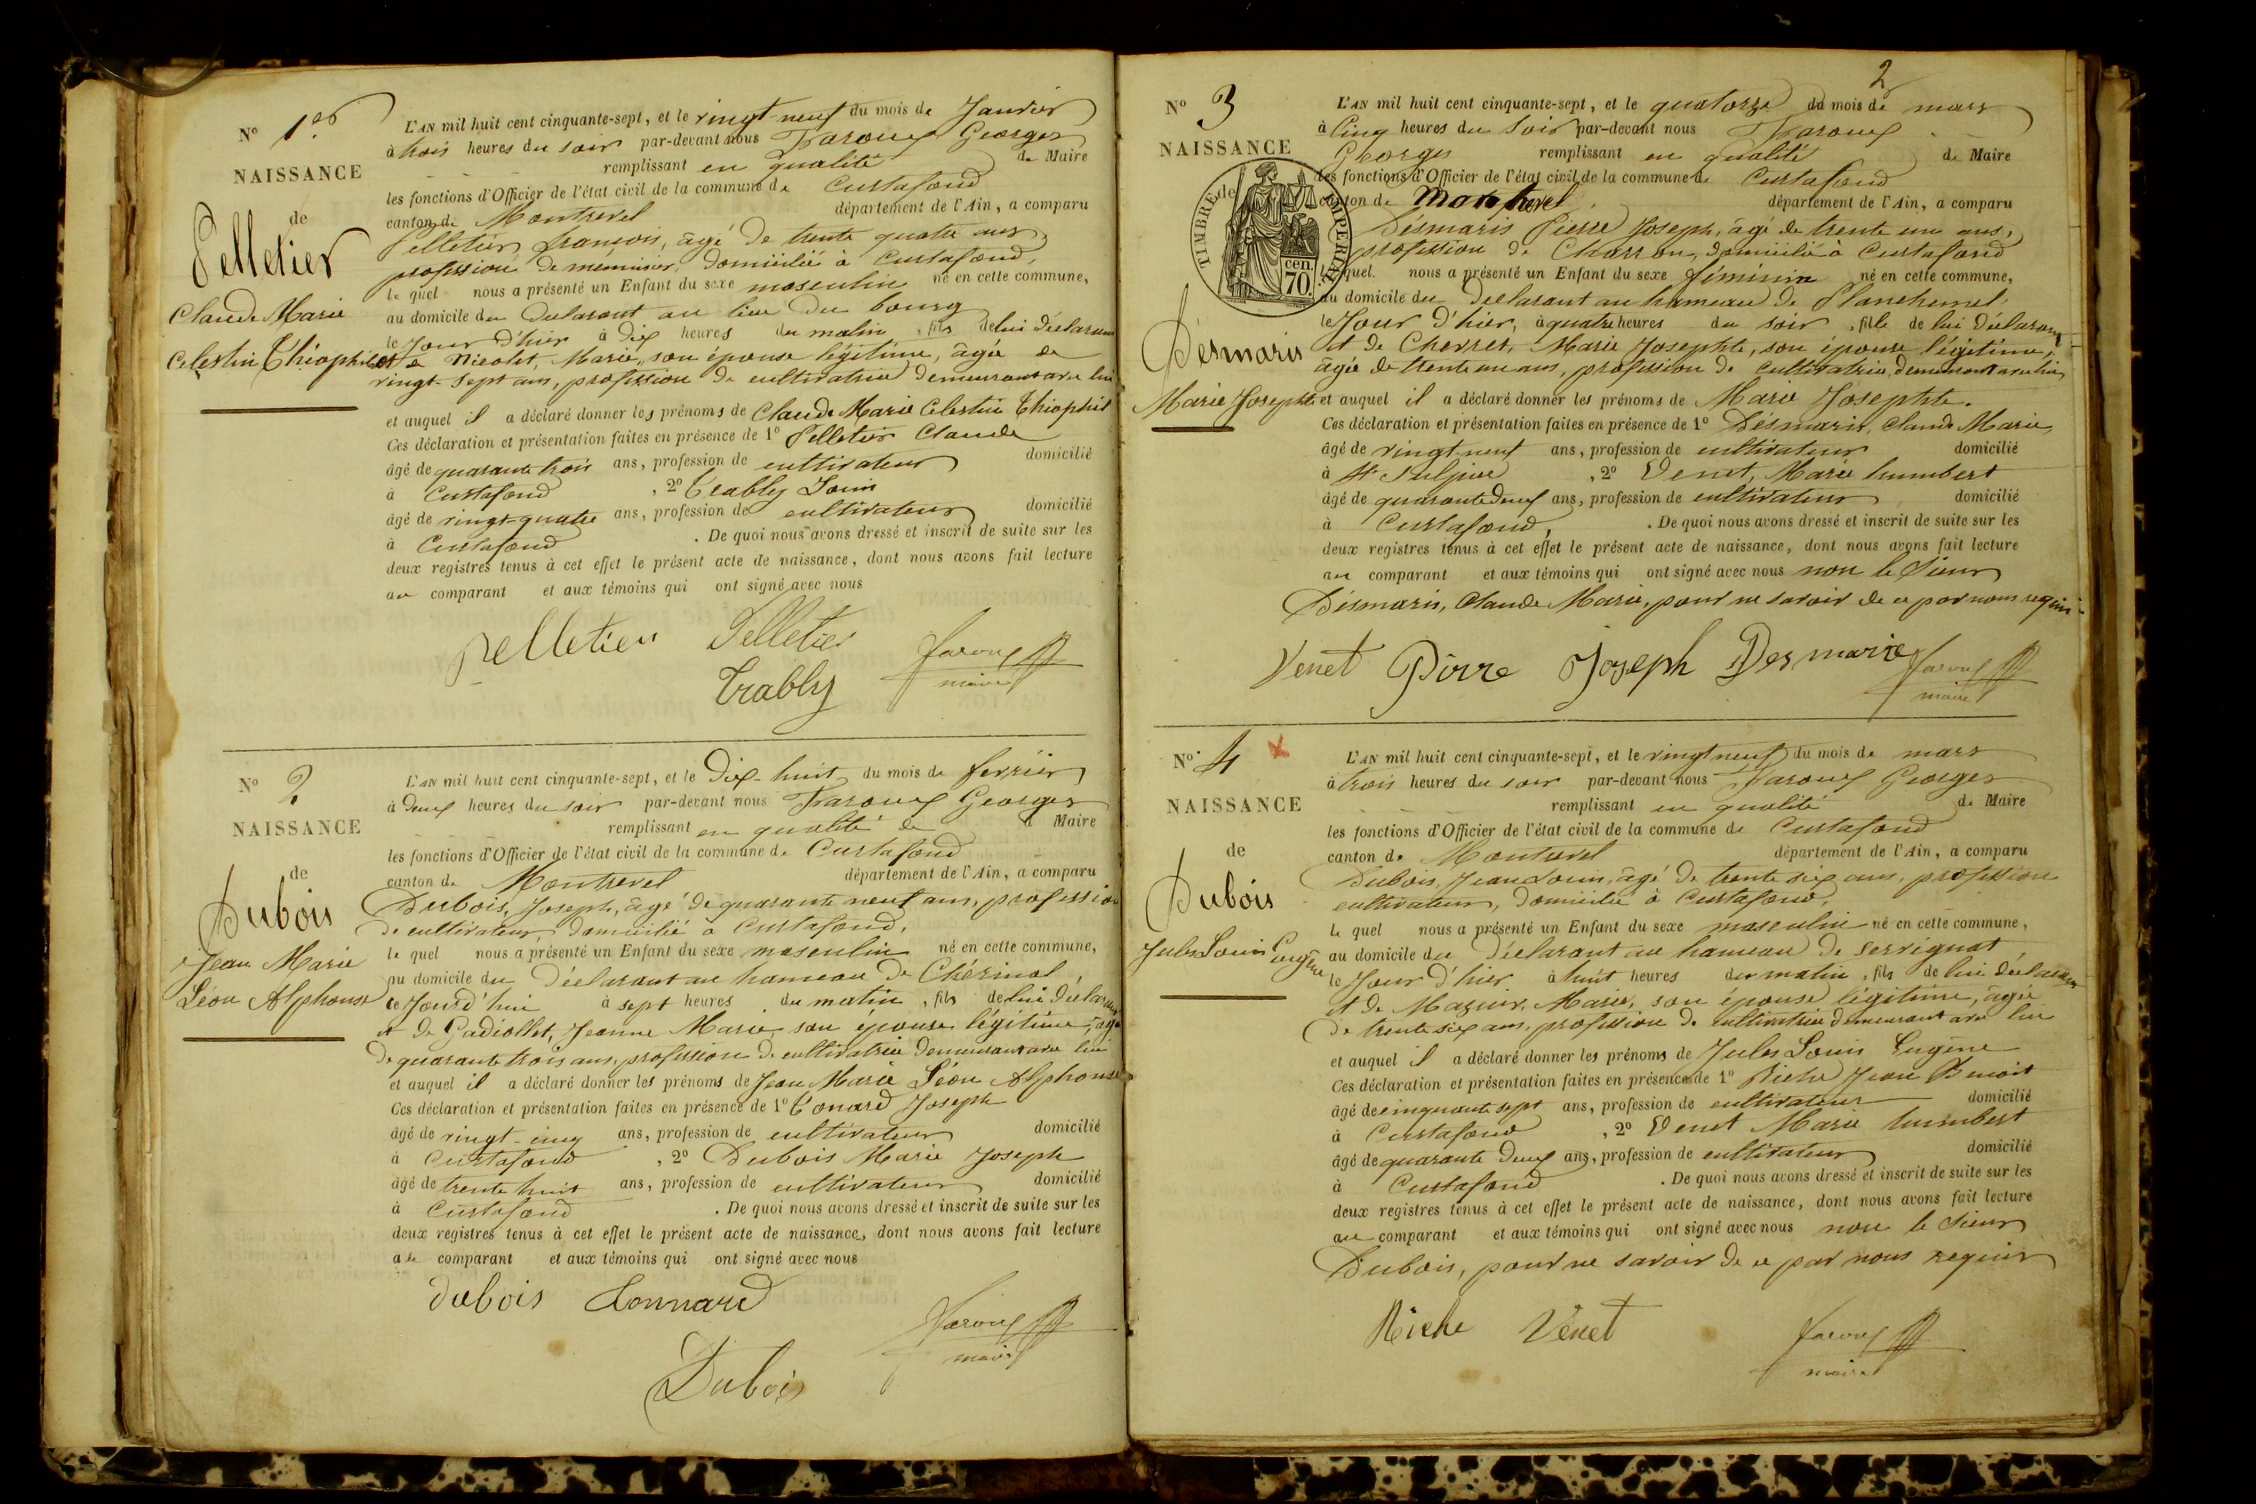 N° 1er
NAISSANCE
de
Pelletier
Claude Marie
Celestin Théophile
L'AN mil huit cent cinquante-sept, et le vingt-neuf du mois de Janvier
à trois heures du soir par-devant nous Georges
remplissant en qualité de Maire
les fonctions d'Officier de l'état civil de la commune de Curtafond
canton de Montrevel département de l'Ain, a comparu
Pelletier françois, âgé de trente quatre ans,
profession de menuisier, domicilié à Curtafond,
le quel nous a présenté un Enfant du sexe masculin né en cette commune,
au domicile du Déclarant au lieu du bourg
le Jour d'hier à dix heures du matin, fils de lui déclarant
et de Nicolet, Marie, son épouse légitime, âgée de
vingt-sept ans, profession de cultivatrice demeurant avec lui
et auquel il a déclaré donner les prénoms de Claude Marie Celestin Théophile
Ces déclaration et présentation faites en présence de 1° Pelletier Claude
âgé de quarante trois ans, profession de cultivateur domicilié
à Curtafond, 2° Trably Louis
âgé de vingt-quatre ans, profession de cultivateur domicilié
à Curtafond. De quoi nous avons dressé et inscrit de suite sur les
deux registres tenus à cet effet le présent acte de naissance, dont nous avons fait lecture
au comparant et aux témoins qui ont signé avec nous
pelletier Pelletier
Trably maire
N° 2
NAISSANCE
de
Dubois
Jean Marie
Léon Alphonse
L'AN mil huit cent cinquante-sept, et le Dix-huit du mois de février
à deux heures du soir par-devant nous Georges
remplissant en qualité de Maire
les fonctions d'Officier de l'état civil de la commune de Curtafond
canton de Montrevel département de l'Ain, a comparu
Dubois, Joseph, âgé de quarante neuf ans, profession
de cultivateur, domicilié à Curtafond,
le quel nous a présenté un Enfant du sexe masculin né en cette commune,
au domicile du Déclarant au hameau de Chérinal,
ce Jourd'hui à sept heures du matin, fils de lui déclarant
et de Gadiollet, Jeanne Marie son épouse légitime, âgée
de quarante trois ans, profession de cultivatrice demeurant avec lui
et auquel il a déclaré donner les prénoms de Jean Marie Léon Alphonse
Ces déclaration et présentation faites en présence de 1° Joseph
âgé de vingt-cinq ans, profession de cultivateur domicilié
à Curtafond, 2° Dubois Marie Joseph
âgé de trente huit ans, profession de cultivateur domicilié
à Curtafond. De quoi nous avons dressé et inscrit de suite sur les
deux registres tenus à cet effet le présent acte de naissance, dont nous avons fait lecture
au comparant et aux témoins qui ont signé avec nous
dubois
maire
Dubois
2
N° 3
NAISSANCE
TIMBRE IMPERIAL
cen. 70.
de
Désmaris
Marie Josephte
L'AN mil huit cent cinquante-sept, et le quatorze du mois de mars
à Cinq heures du Soir par-devant nous
Georges remplissant en qualité de Maire
les fonctions d'Officier de l'état civil de la commune de Curtafond
canton de Montrevel département de l'Ain, a comparu
Désmaris Pierre Joseph, âgé de trente un ans,
profession de Charron, domicilié à Curtafond
le quel nous a présenté un Enfant du sexe féminin né en cette commune,
au domicile du Déclarant au hameau de
le Jour d'hier, à quatre heures du soir, fille de lui Déclarant
et de Marie Josephte, son épouse légitime,
âgée de trente un ans, profession de cultivatrice, demeurant avec lui,
et auquel il a déclaré donner les prénoms de Marie Josephte.
Ces déclaration et présentation faites en présence de 1° Désmaris, Claude Marie,
âgé de vingt-neuf ans, profession de cultivateur domicilié
à St Sulpice, 2° Venet, Marie humbert
âgé de quarante deux ans, profession de cultivateur domicilié
à Curtafond. De quoi nous avons dressé et inscrit de suite sur les
deux registres tenus à cet effet le présent acte de naissance, dont nous avons fait lecture
au comparant et aux témoins qui ont signé avec nous non le Sieur
Désmaris, Claude Marie, pour ne savoir de ce par nous requis.
Venet Pirre Joseph Desmaris
maire
N° 4
NAISSANCE
de
Dubois
Jules Louis Eugène
L'AN mil huit cent cinquante-sept, et le vingt neuf du mois de mars
à trois heures du soir par-devant nous Georges
remplissant en qualité de Maire
les fonctions d'Officier de l'état civil de la commune de Curtafond
canton de Montrevel département de l'Ain, a comparu
Dubois, Jean Louis, âgé de trente six ans, profession
cultivateur, domicilié à Curtafond,
le quel nous a présenté un Enfant du sexe masculin né en cette commune,
au domicile du Déclarant au hameau de Serrignat
le Jour d'hier à huit heures du matin, fils de lui déclarant
et de Mazuir, Marie, son épouse légitime, âgée
de trente six ans, profession de cultivatrice demeurant avec lui
et auquel il a déclaré donner les prénoms de Jules Louis Eugène
Ces déclaration et présentation faites en présence de 1° Riche Jean Benoit
âgé de cinquante sept ans, profession de cultivateur domicilié
à Curtafond, 2° Venet Marie humbert
âgé de quarante deux ans, profession de cultivateur domicilié
à Curtafond. De quoi nous avons dressé et inscrit de suite sur les
deux registres tenus à cet effet le présent acte de naissance, dont nous avons fait lecture
au comparant et aux témoins qui ont signé avec nous non le Sieur
Dubois, pour ne savoir de ce par nous requis
Riche Venet
maire